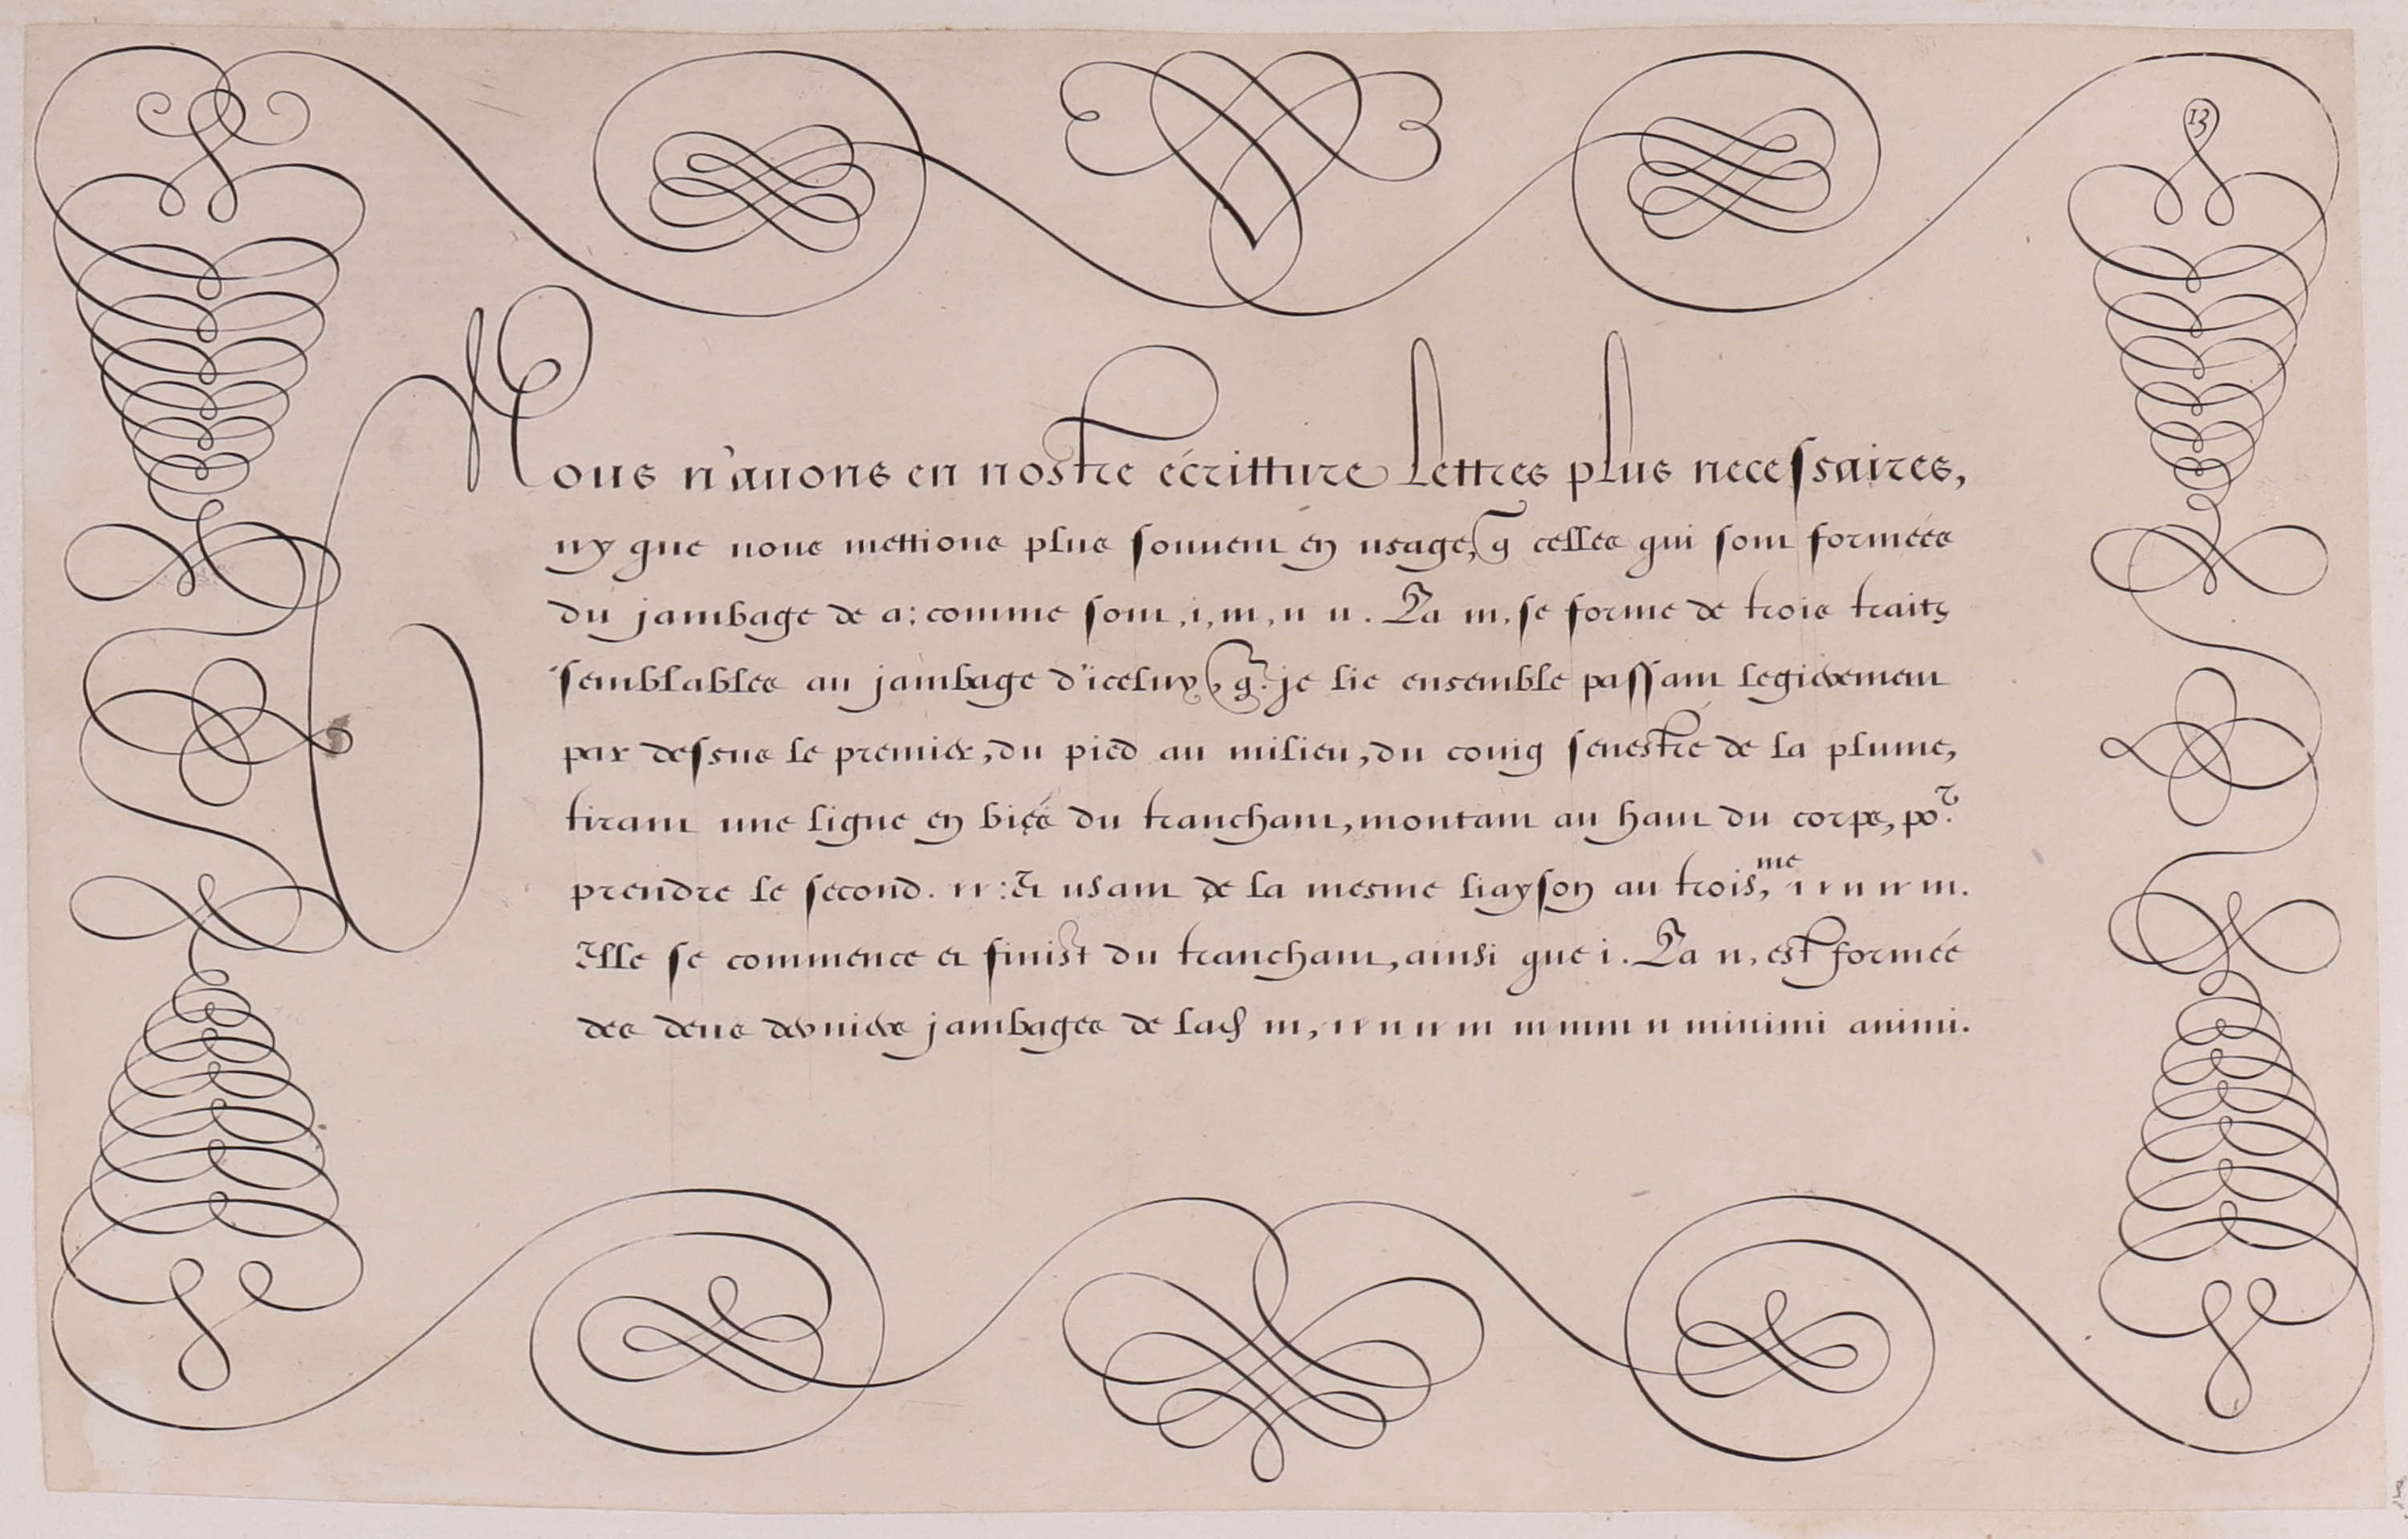 13
Nous n'auons en nostre écritture Lettres plus necessaires,
ny que nous mettions plus souuent en usage, q̃ celles qui sont formées
du jambage de a: comme sont, i, m, n u. La m, se forme de trois traits
semblables au jambage d'iceluy, q̃. je lie ensemble passant legierement
par dessus le premier, du pied au milieu, du coing senestre de la plume,
tirant une ligne en biés du tranchant, montant au haut du corps, poʳ.
prendre le second. rr: Et usant de la mesme liayson au trois,ᵐᵉ ı r n rr m.
Elle se commence et finist du tranchant, ainsi que i. La n, est formée
des deus derniers jambages de lad m, ı r n rr m m mm n minimi animi.